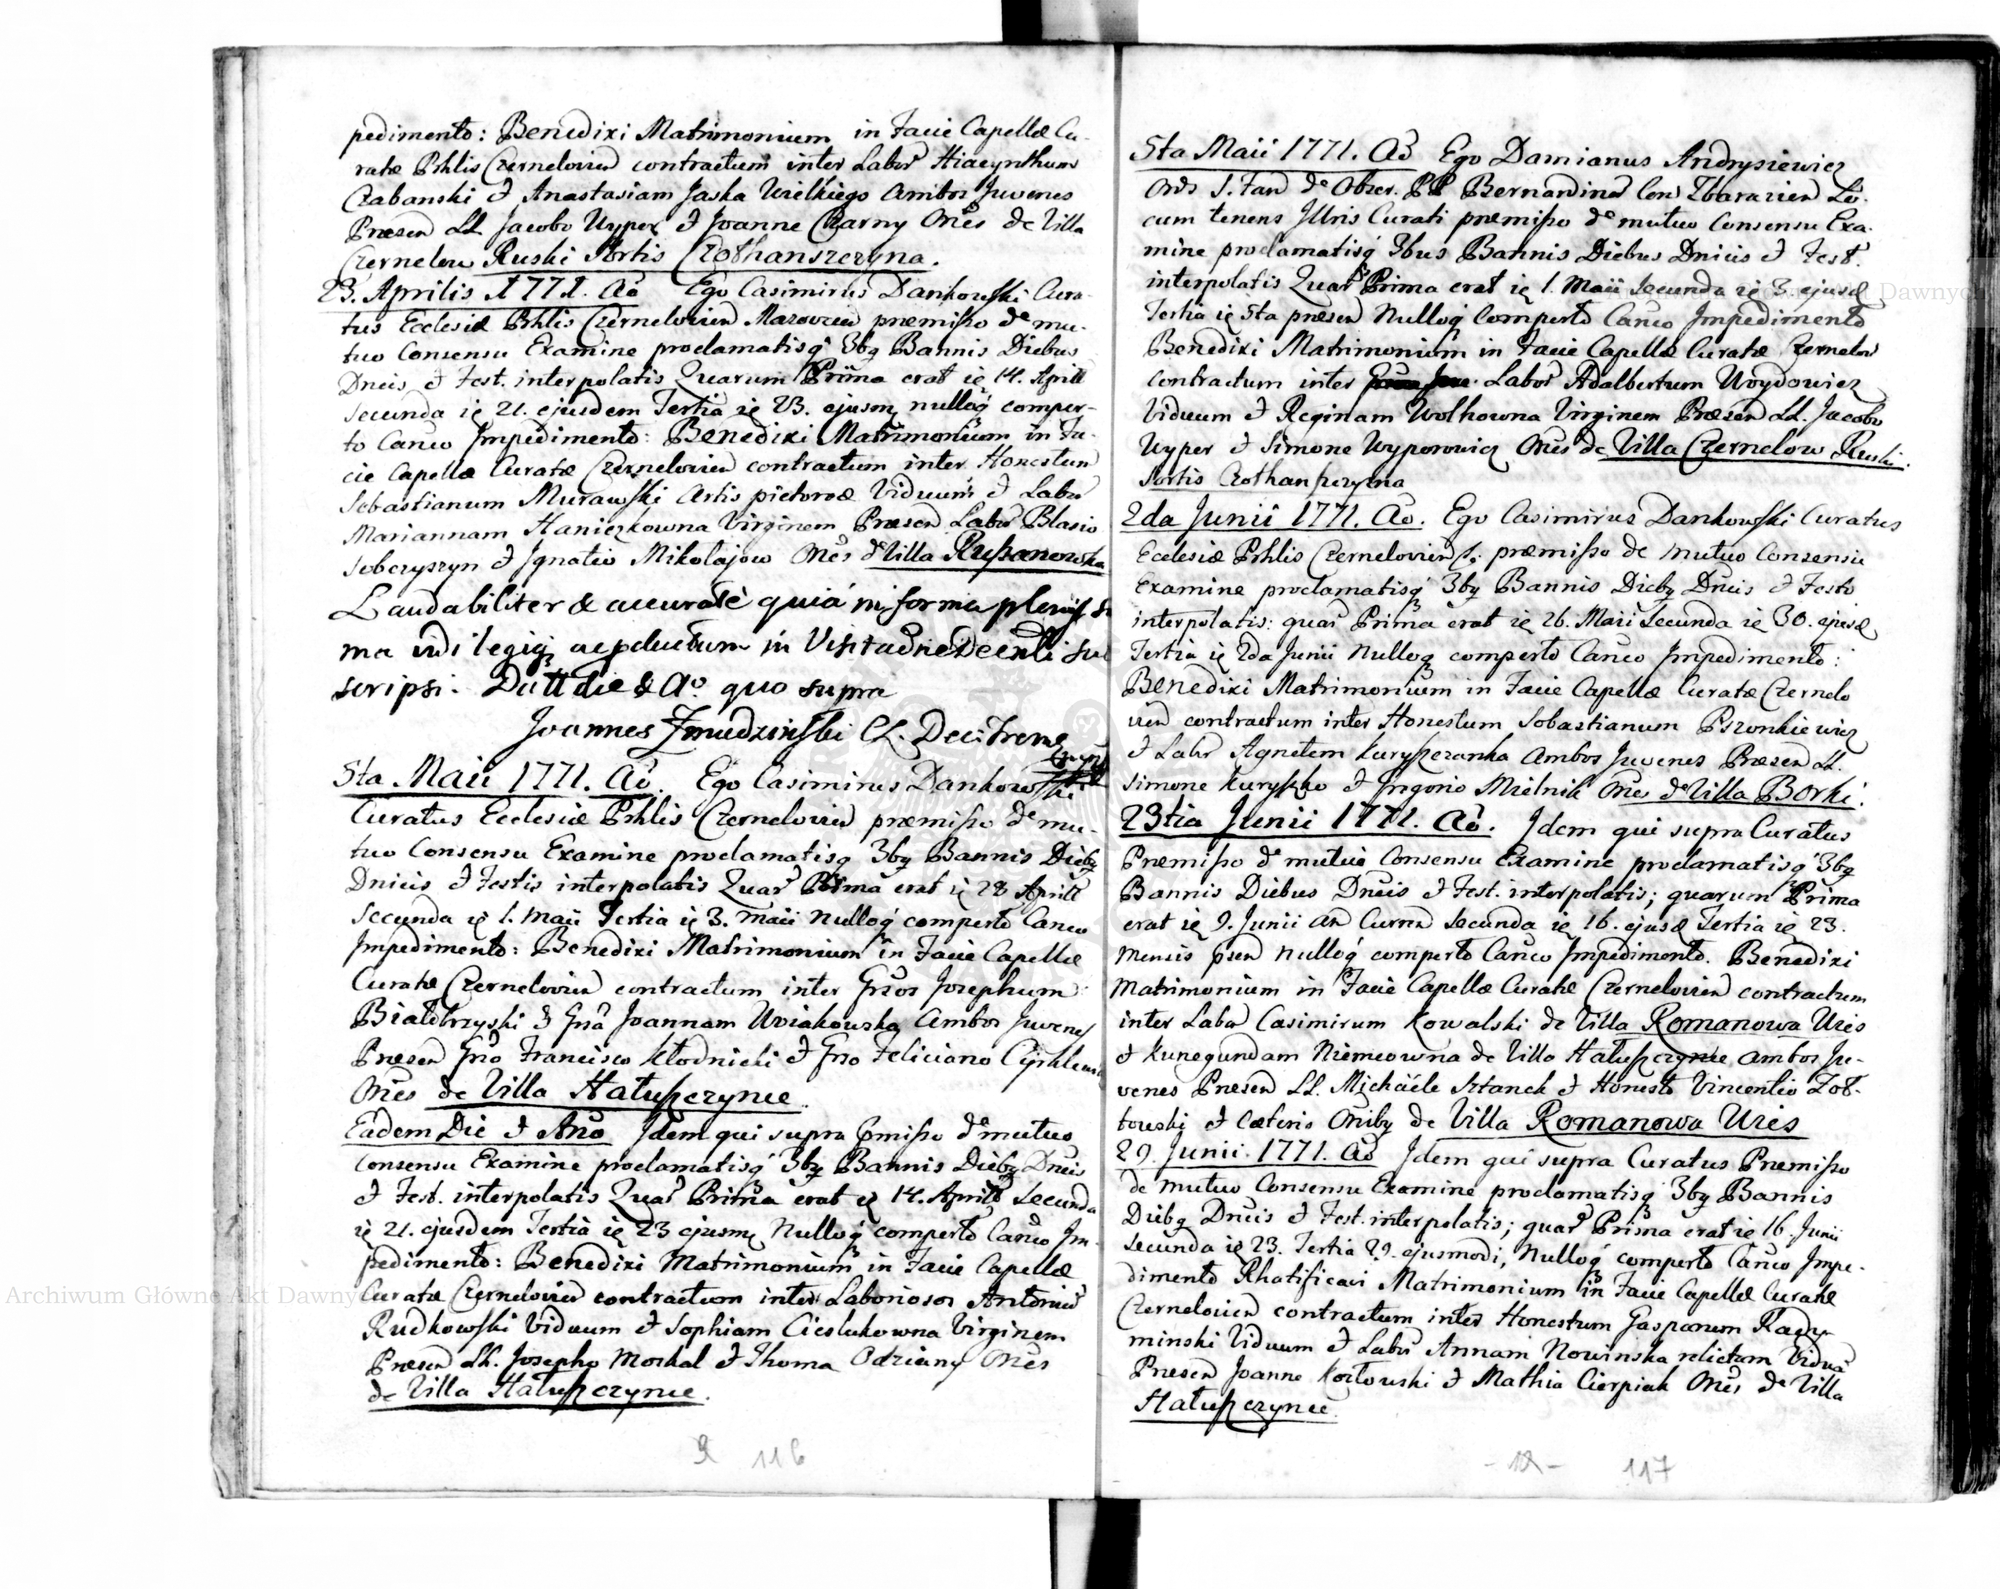 pedimento: Benedixi Matrimonium in Facie Capellæ Cu-
ratæ Prhlis Czernelovien contractum inter Labor Hiacynthum
Czabanski & Anastasiam Jaska Wielkiego ambos Juvenes
Præsen LL. Jacobo Wyper & Joanne Czarny Oñes de Villa
Czernelow Ruski Sortis Czothanszczyzna.
23. Aprilis 1771. Aõ Ego Casimirus Dankowski Cura-
tus Ecclesiæ Prhlis Czernelovien Mazovien præmisso de mu-
tuo Consensu Examine proclamatisq 3bq Bannis Diebus
Dneis & Fest. interpolatis Quarum Prima erat ię 14. Aprill
Secunda ię 21. ejusdem Tertia ię 23. ejusm nulloq comper-
to Canco Impedimento: Benedixi Matrimonium in Fa-
cie Capellæ Curatæ Czernelovien contractum inter Honestum
Sebastianum Murawski Artis pictoræ Viduum & Labor
Mariannam Haniczkowna Virginem Præsen Labor Blasio
Sobczyszyn & Ignatio Mikolajow Oñes de Villa Russanowka
Laudabiliter & accurate quia in forma plenissi
ma vidi legiq in Visitaõne Decnli sub
scripsi. Datt die & Aº quo supra
Joannes Zmudzinski CL. Dec. Trem
5ta Maii 1771. Aõ. Ego Casimirus Dankowski
Curatus Ecclesiæ Prhlis Czernelovien præmisso de mu-
tuo Consensu Examine proclamatisq 3bq Bannis Diebq
Dnicis & Festis interpolatis Quar Prima erat ię 28 Aprill
Secunda ię 1. Maii Tertia ię 3. Maii nulloq comperto Canco
Impedimento: Benedixi Matrimonium in Facie Capellæ
Curatæ Czernelovien contractum inter Gnsos Josephum
Bialobrzyski & Gnsa Joannam Uviakowska Ambos Juvenes
Præsen Gnso Francisco Kłodnicki & Gnso Feliciano
Oñes de Villa Hałuszczynce.
Eadem Die & Año Idem qui supra Pmisso de mutuo
Consensu Examine proclamatisq 3bq Bannis Diebq Dneis
& Fest. interpolatis Quar Prima erat ię 14. Aprill Secunda
ię 21. ejusdem Tertia ię 23 ejusm Nulloq comperto Canco Im-
pedimento: Benedixi Matrimonium in Facie Capellæ
Curatæ Czernelovien contractum inter Laboriosos Antonium
Rudkowski Viduum & Sophiam Cieslukowna Virginem
Præsen LL. Josepho Moskal & Thoma Odziany Oñes
de Villa Hałuszczynce.
9 116
5ta Maii 1771. Aõ Ego Damianus Andrysiewicz
Ords S. Fran de Obser. PP Bernardino Con Zbarazien Lo-
cum tenens Illris Curati præmisso de mutuo Consensu Exa-
mine proclamatisq 3bus Bannis Diebus Dnicis & Fest.
interpolatis Quar Prima erat ię 1. Maii Secunda ię 3. ejusd
Tertia ię 5ta præsen Nulloq Comperto Canco Impedimento
Benedixi Matrimonium in Facie Capellæ Curatæ Czernelov
contractum inter Labor Adalbertum Woydowicz
Viduum & Reginam Wolkowna Virginem Præsen LL. Jacobo
Wyper & Simone Wyporowicz Oñes de Villa Czernelow Ruski.
Sortis Czothanszczyzna
2da Junii 1771. Aõ. Ego Casimirus Dankowski Curatus
Ecclesiæ Prhlis Czernelovien præmisso de mutuo Consensu
Examine proclamatisq 3bq Bannis Diebq Dneis & Festo
interpolatis: quar Prima erat ię 26. Maii Secunda ię 30. ejusd
Tertia ię 2da Junii Nulloq comperto Canco Impedimento:
Benedixi Matrimonium in Facie Capellæ Curatæ Czernelo
vien contractum inter Honestum Sobastianum Pszonkiewicz
& Labor Agnetem Kuryszanka Ambos Juvenes Præsen LL.
Simone Kuryszko & Grigorio Mielnik Oñes de Villa Borki.
23tia Junii 1771. Aõ. Idem qui supra Curatus
Præmisso de mutuo Consensu Examine proclamatisq 3bq
Bannis Diebus Dneis & Fest. interpolatis; quarum Prima
erat ię 9. Junii an Curren Secunda ię 16. ejusd Tertia ię 23.
Mensis psen nulloq comperto Canco Impedimento. Benedixi
Matrimonium in Facie Capellæ Curatæ Czernelovien contractum
inter Labor Casimirum Kowalski de Villa Romanowa Wies
& Kunegundam Niemcowna de Villa Hałuszczynce ambos Ju-
venes Præsen LL. Michaele Sztanek & Honesto Vincentio Zoł-
towski & Cæteris Oñibq de Villa Romanowa Wies
29. Junii 1771. Aõ Idem qui supra Curatus Præmisso
de mutuo Consensu Examine proclamatisq 3bq Bannis
Diebq Dneis & Fest. interpolatis; quar Prima erat ię 16. Junii
Secunda ię 23. Tertia 29. ejusmodi, Nulloq comperto Canco Impe-
dimento Rhatificavi Matrimonium in Facie Capellæ Curatæ
Czernelovien contractum inter Honestum Gasparum Rady-
minski Viduum & Labor Annam Nowinska relictam Viduã
Præsen Joanne Kozłowski & Mathia Cierpiak Oñes de Villa
Hałuszczynce
- 12 - 117
Archiwum Główne Akt Dawnych